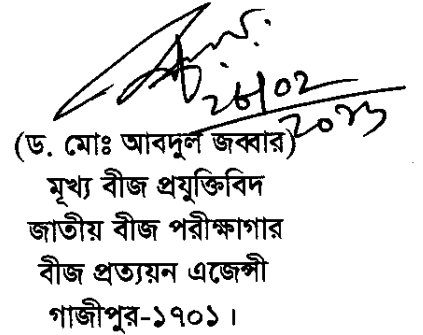 ২৮/০২
২০২৩
(ড. মোঃ আবদুল জব্বার)
মূখ্য বীজ প্রযুক্তিবিদ
জাতীয় বীজ পরীক্ষাগার
বীজ প্রত্যয়ন এজেন্সী
গাজীপুর-১৭০১।